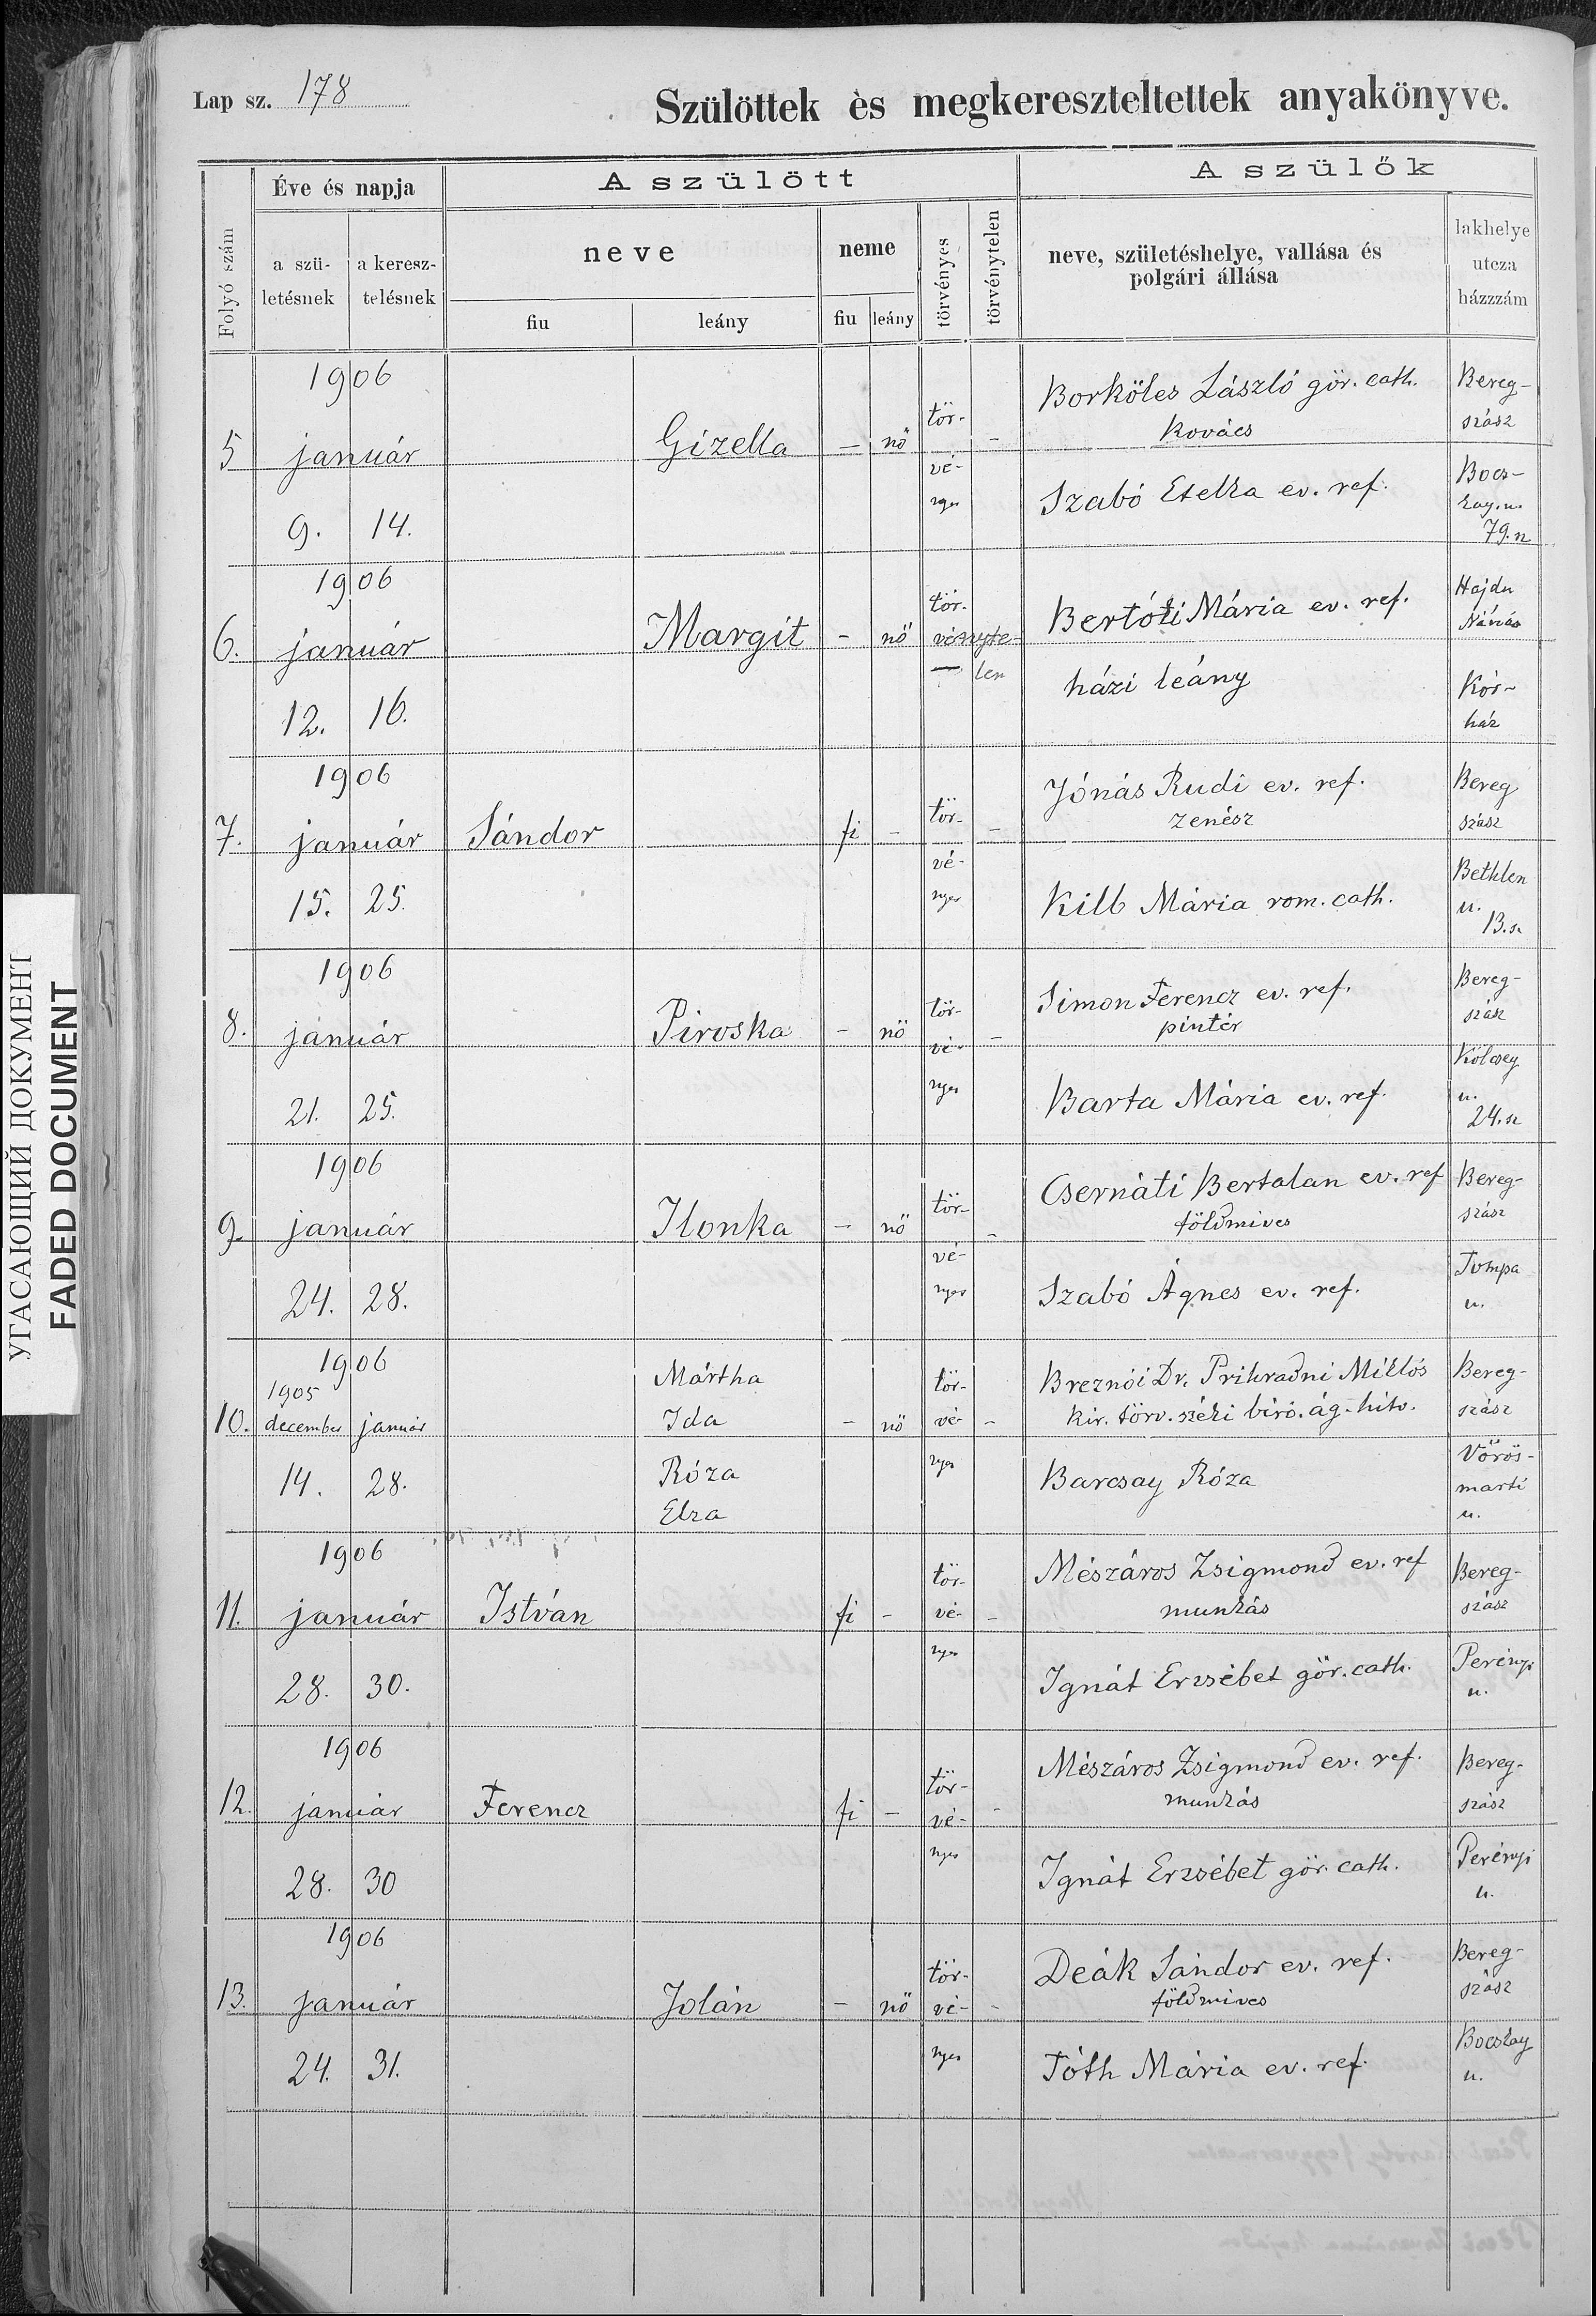 Lap sz. 178
Szülöttek ès megkereszteltettek anyakönyve.
Folyó szám
Éve és napja
A szülött
A szülők
a szü-
letésnek
a keresz-
telésnek
neve
neme
törvényes
törvénytelen
neve, születéshelye, vallása és
polgári állása
lakhelye
utcza
házzzám
fiu
leány
fiu
leány
1906
5 január
9. 14.
Gizella
– nő
tör-
vé-
nyes
–
Borköles László gör. cath.
kovács
Szabó Etelka ev. ref.
Bereg-
szász
Bocs-
kay. u.
79. sz
1906
6. január
12. 16.
Margit
– nő
tör-
vényte-
– len
Bertóti Mária ev. ref.
házi leány
Hajdu
Nánás
Kór-
ház
1906
7. január
15. 25.
Sándor
fi –
tör-
vé-
nyes
–
Jónás Rudi ev. ref.
zenész
Kilb Mária rom. cath.
Bereg
szász
Bethlen
u.
13. sz
1906
8. január
21. 25.
Piroska
– nő
tör-
vé-
nyes
–
Simon Ferencz ev. ref.
pintér
Barta Mária ev. ref.
Bereg-
szász
Kölcsey
u.
24. sz
1906
9. január
24. 28.
Ilonka
– nő
tör-
vé-
nyes
–
Csernáti Bertalan ev. ref
földmives
Szabó Ágnes ev. ref.
Bereg-
szász
Tompa
u.
1906
1905
10. december január
14. 28.
Mártha
Ida
Róza
Elza
– nő
tör-
vé-
nyes
–
Breznói Dr. Prihradni Miklós
kir. törv. széki biró. ág. hitv.
Barcsay Róza
Bereg-
szász
Vörös-
marti
u.
1906
11. január
28. 30.
István
fi –
tör-
vé-
nyes
–
Mészáros Zsigmond ev. ref
munkás
Ignát Erzsébet gör. cath.
Bereg-
szász
Perényi
u.
1906
12. január
28. 30
Ferencz
fi –
tör-
vé-
nyes
–
Mészáros Zsigmond ev. ref.
munkás
Ignát Erzsébet gör. cath.
Bereg-
szász
Perényi
u.
1906
13. január
24. 31.
Jolán
– nő
tör-
vé-
nyes
–
Deák Sándor ev. ref.
földmives
Tóth Mária ev. ref.
Bereg-
szász
Bocskay
u.
УГАСАЮЩИЙ ДОКУМЕНТ
FADED DOCUMENT